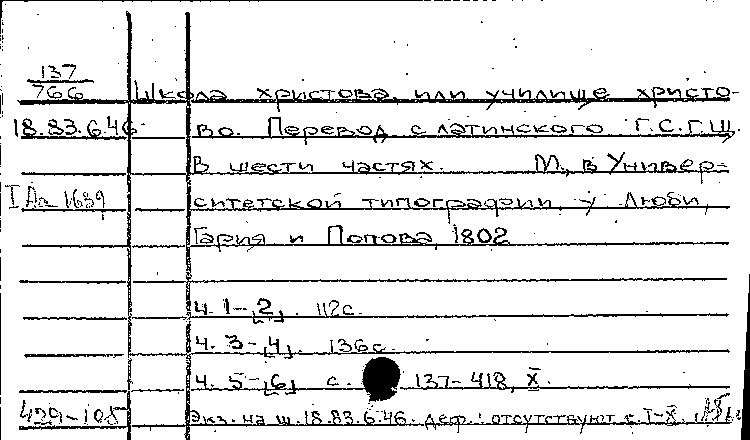 137
766 Школа христова, или училище христо-
18.83.6.46 во. Перевод с латинского Г.С.Г.Щ.
В шести частях. М., в Универ-
I Аа 1639 ситетской типографии, у Люби,
Гария и Попова, 1802
ч. 1-[2]. 112с.
ч. 3-[4]. 136с.
ч. 5-[6] с. 137-418, X.
429-108 Экз. на ш. 18.83.6.46. деф.: отсутствуют с. I-X.